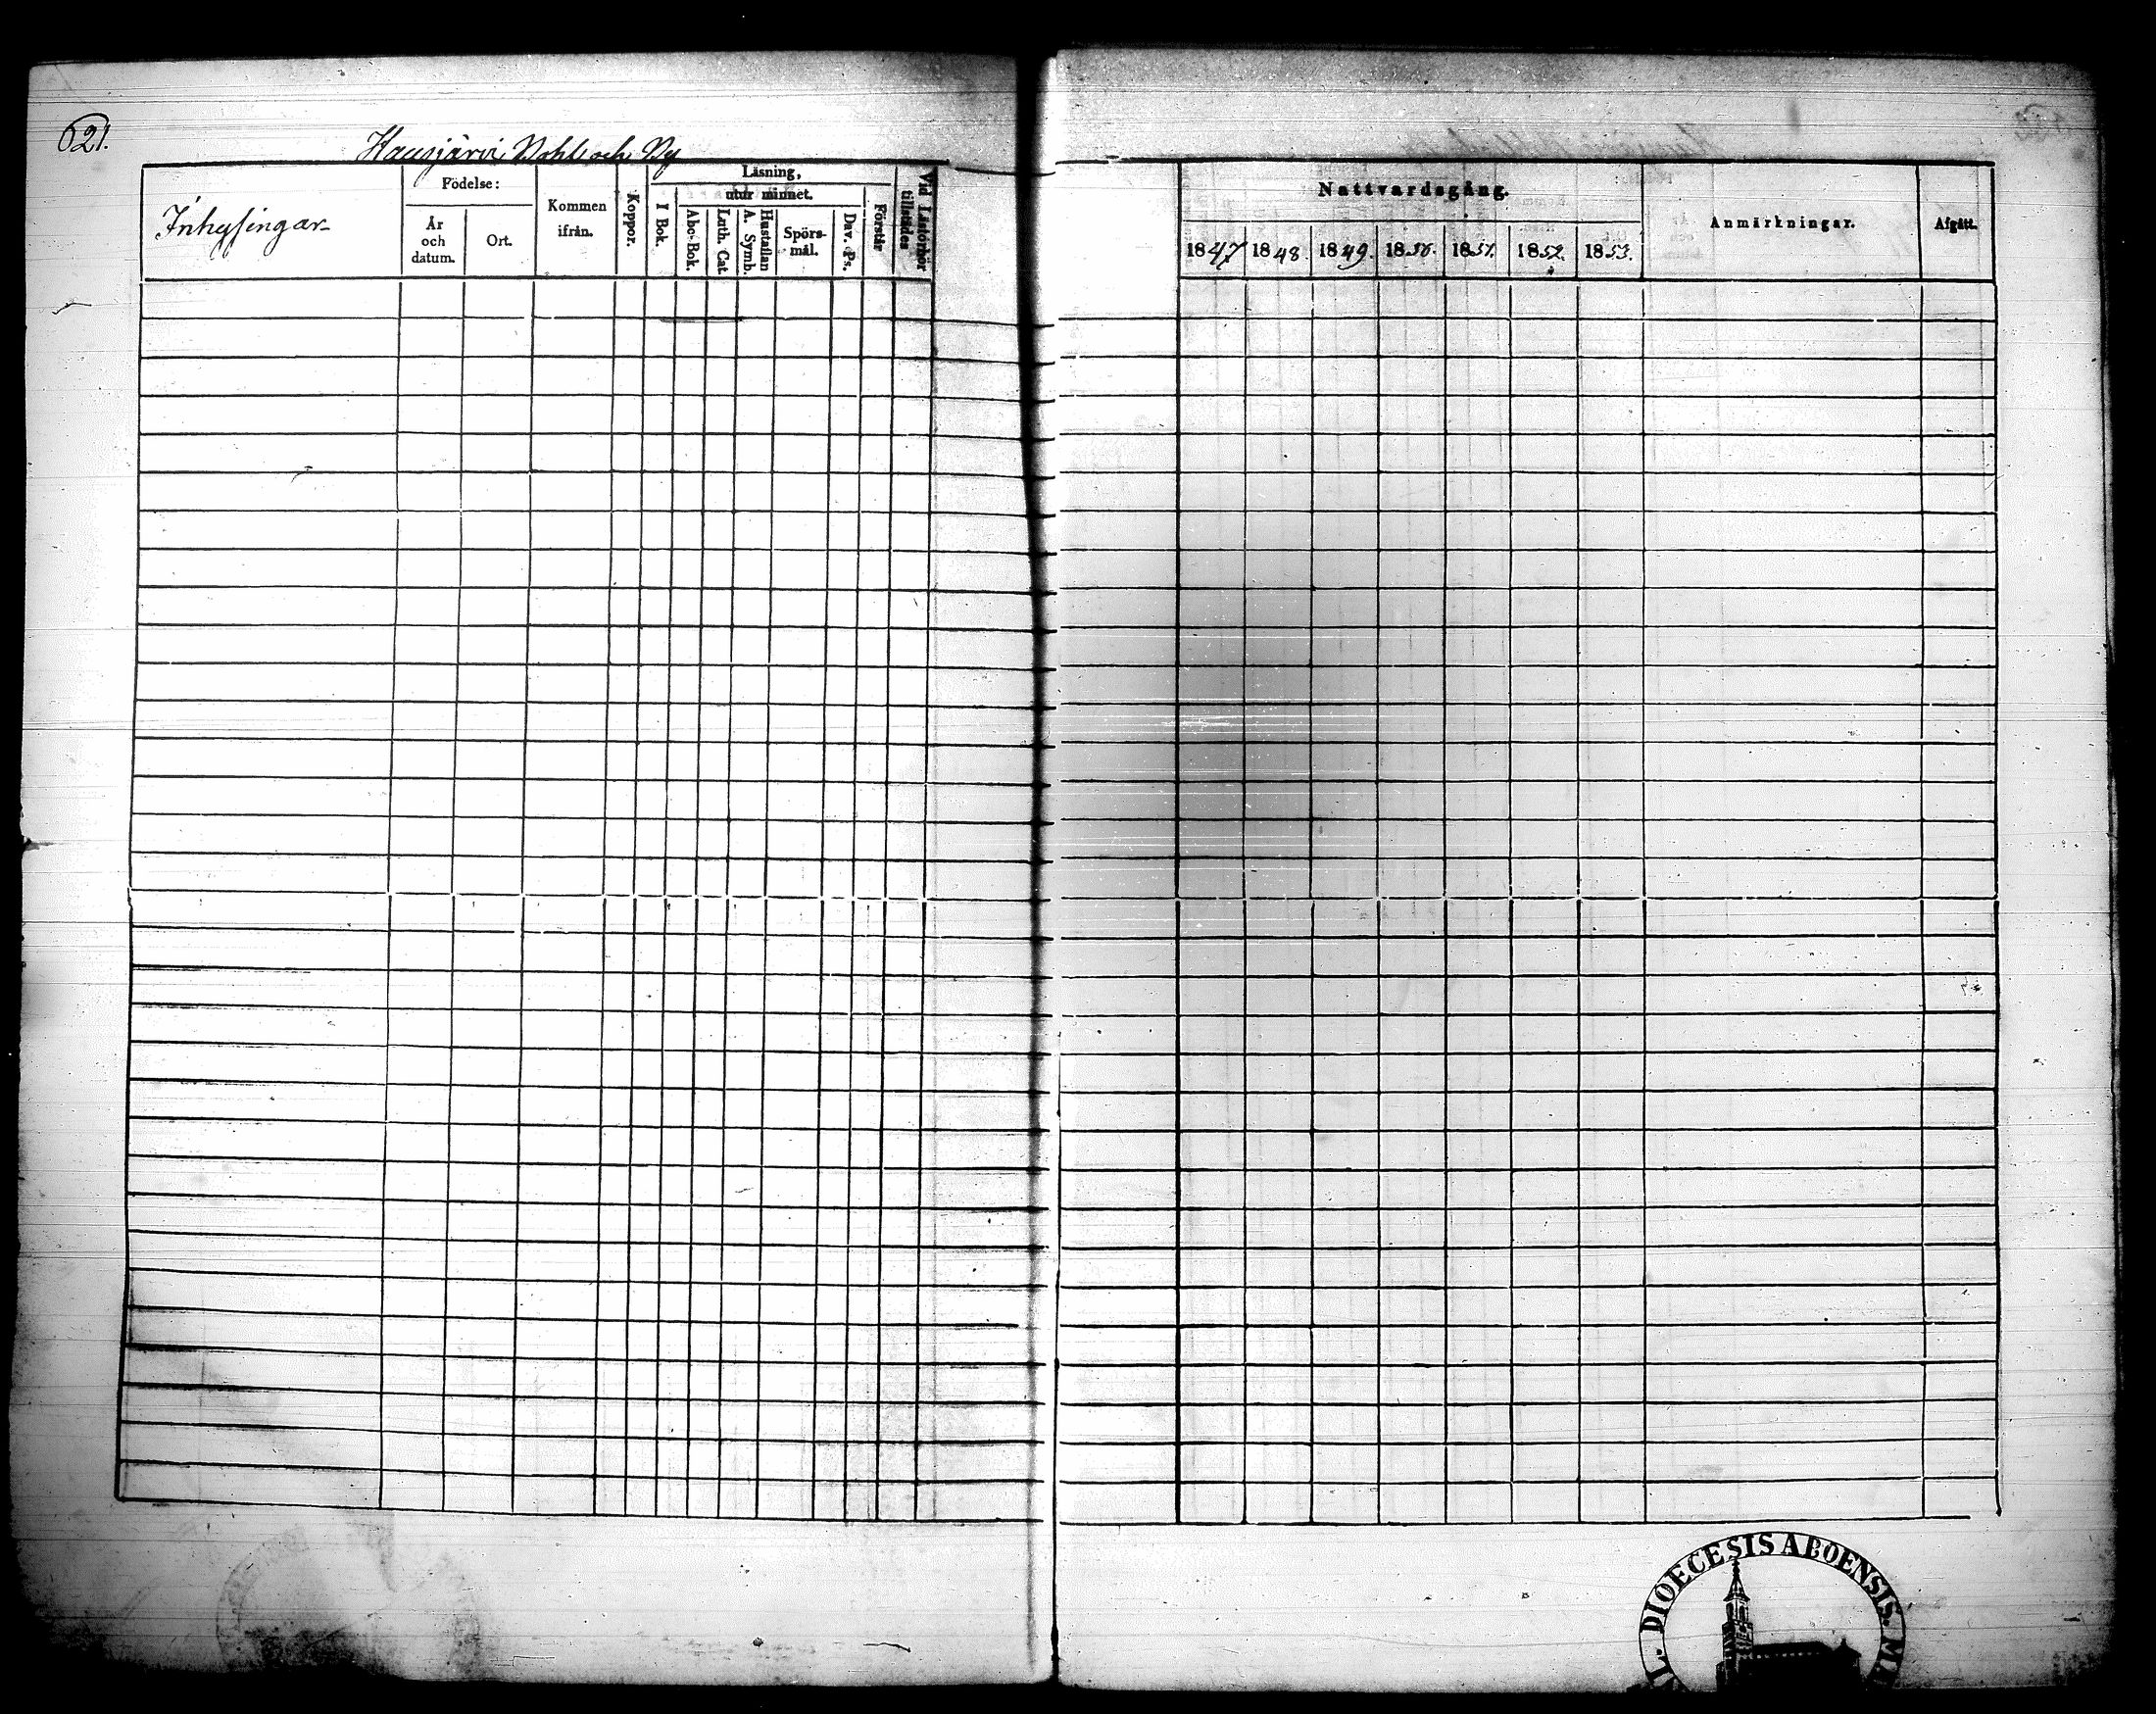 621.
Hausjärvi Bohl och By
Inhysingar
Födelse:
År
och
datum.
Ort.
Kommen
ifrån.
Koppor.
Läsning,
utur minnet.
I Bok.
Abc-Bok.
Luth. Cat.
Hustaflan
A. Symb.
Spörs-
mål.
Dav. Ps.
Förstår
Vid Läsförhör
tillstädes
Nattvardsgång.
1847 1848. 1849. 1850. 1851. 1852. 1853.
Anmärkningar.
Afgått.
DIOECESIS ABOENSIS.